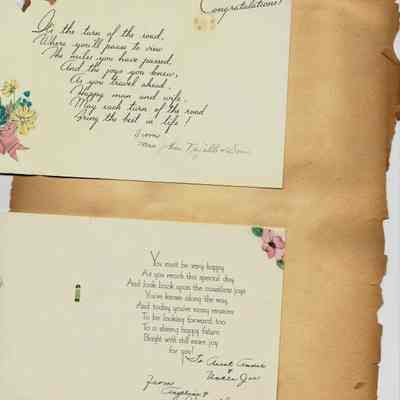 Congratulations!
It's the turn of the road,
Where you'll pause to view
The miles you have passed,
And the joys you knew,
As you travel ahead,
Happy man and wife,
May each turn of the road
Bring the best in life!
From
Mrs. & Son
You must be very happy
As you reach this special day
And look back upon the countless joys
You've known along the way,
And today you've many reasons
To be looking forward, too,
To a shining happy future
Bright with still more joy
for you!
To Aunt Annie
&
Uncle Joe
From
Angeline &